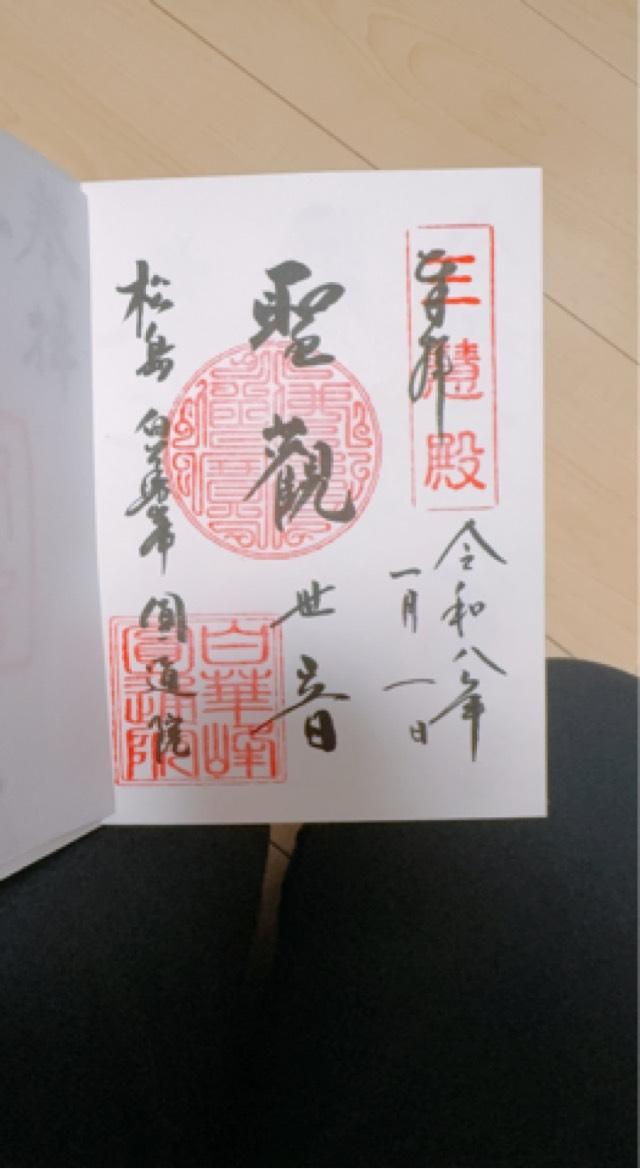 奉拝
三慧殿
令和八年
一月一日
聖観
世音
白華峰
圓通院
松島 白華峰 圓通院